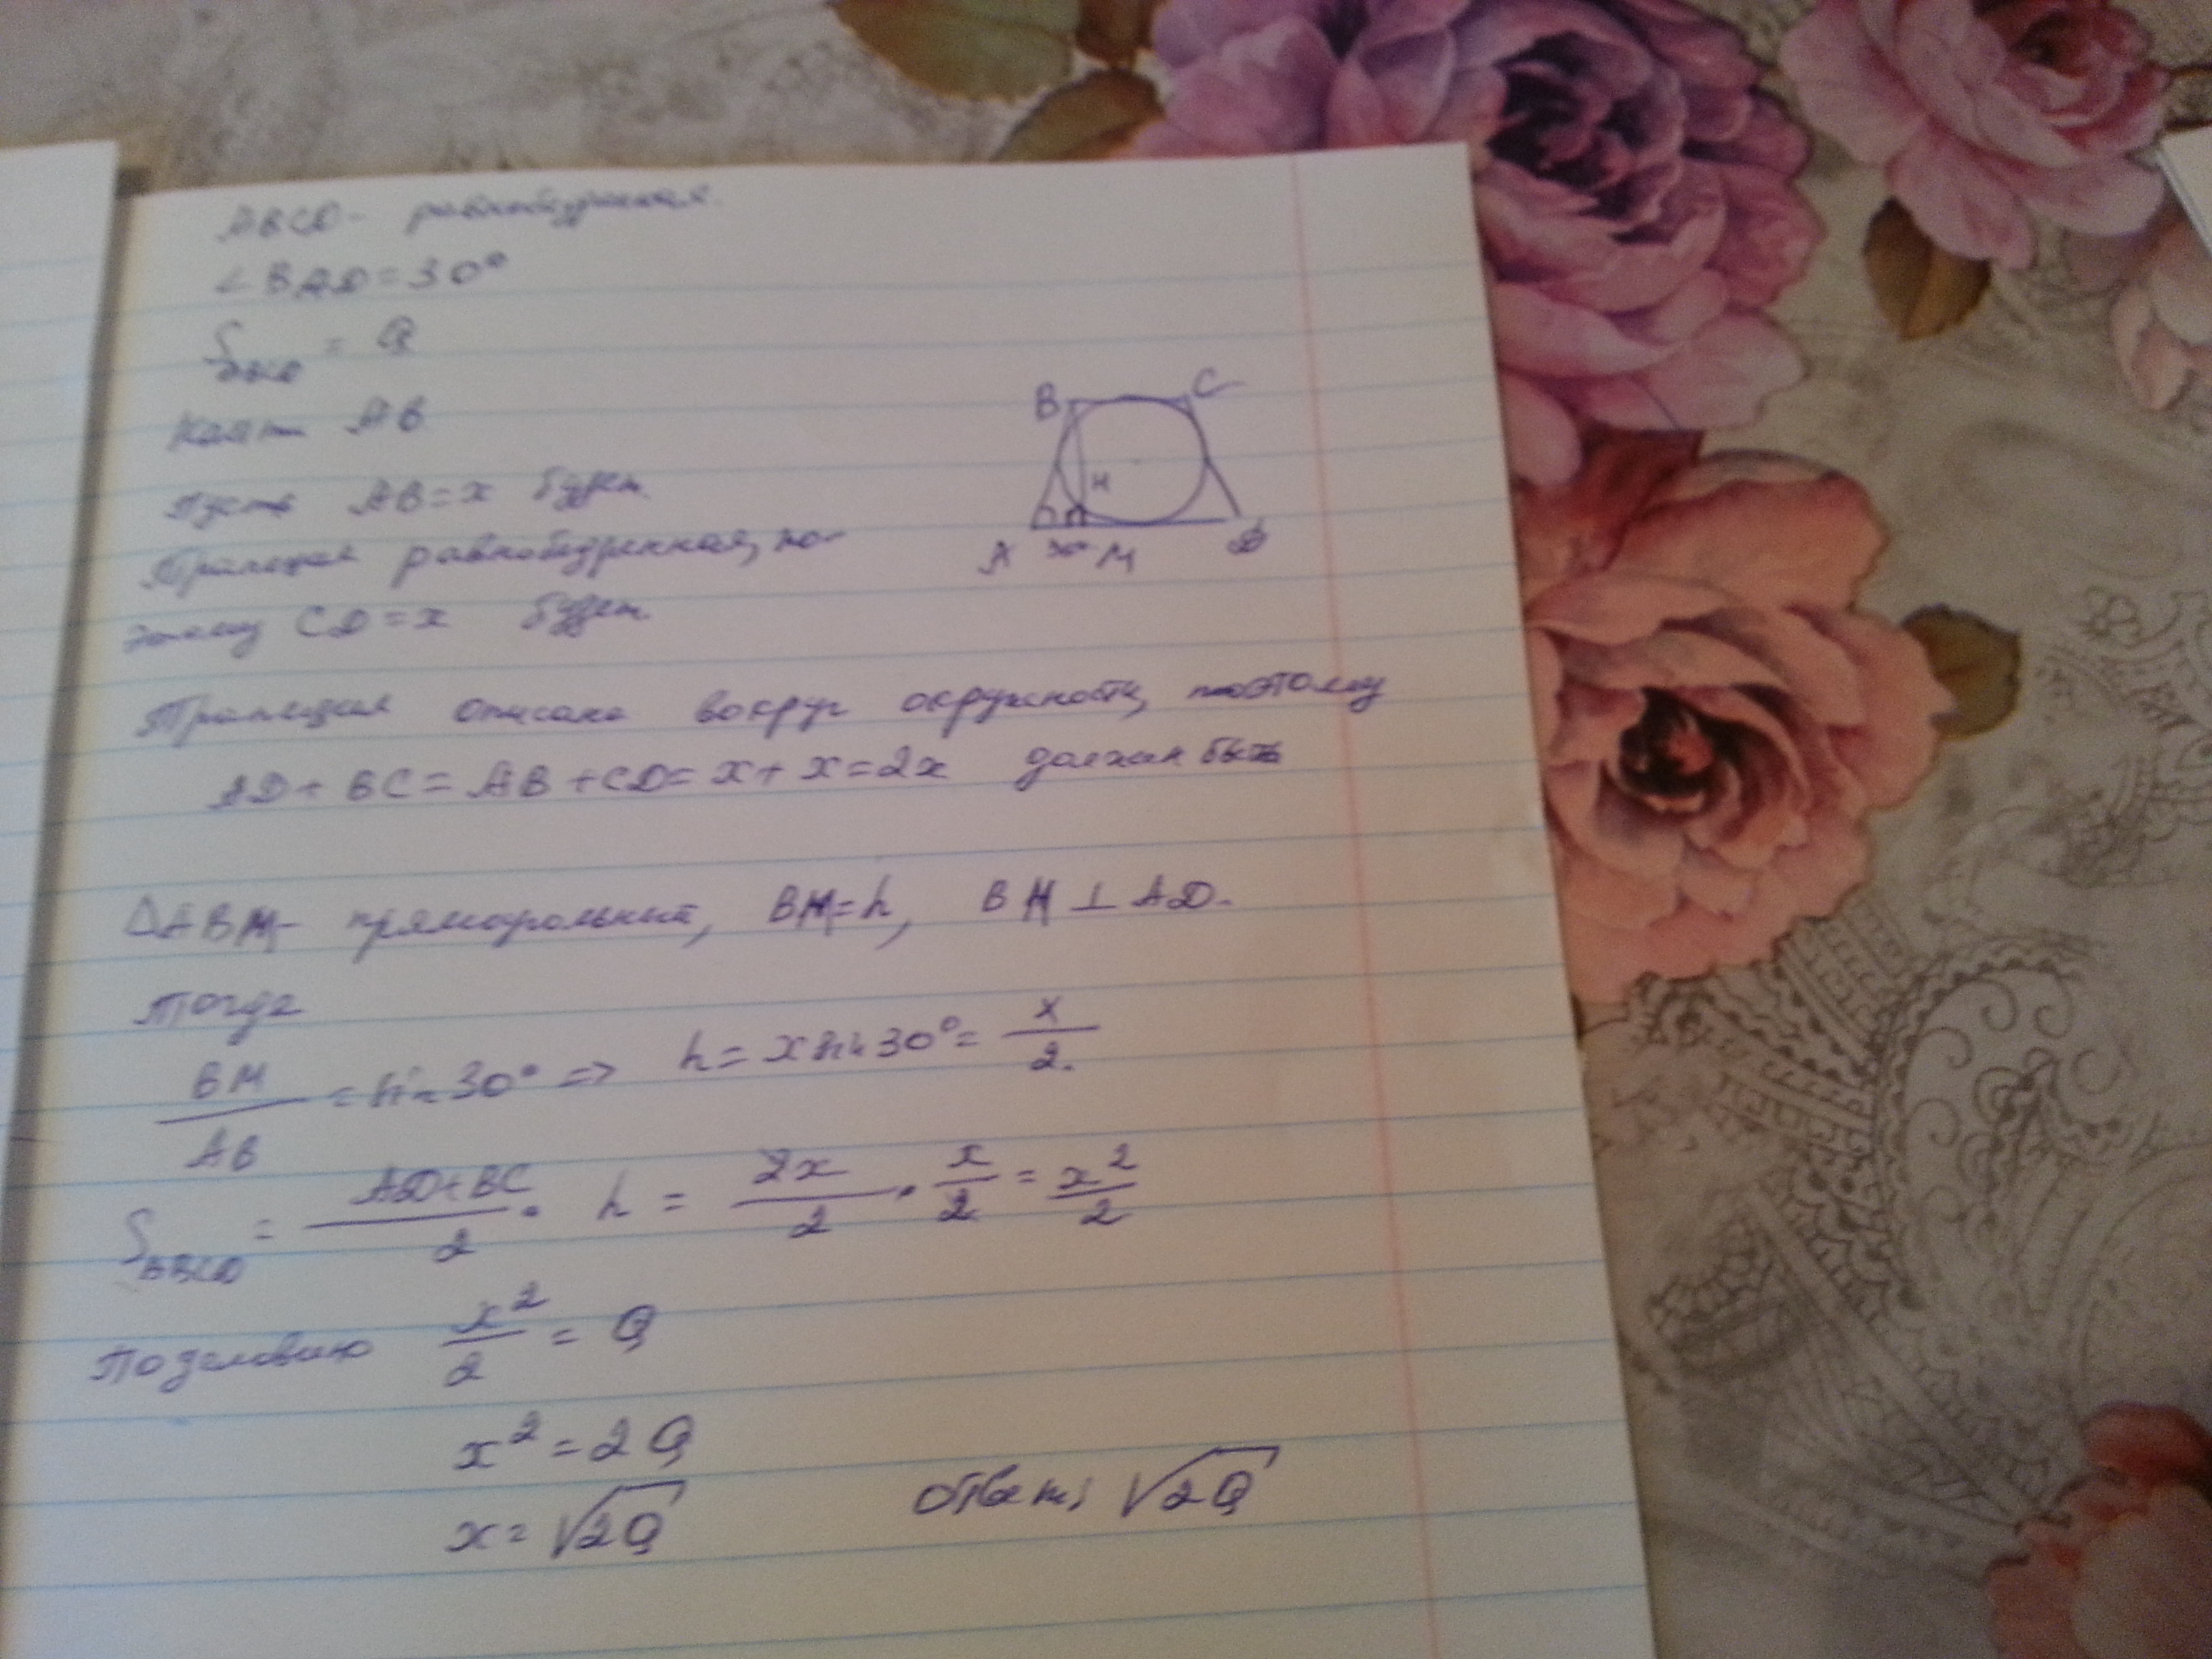 ABCD - равнобедренная.
∠BAD = 30°
S = Q
AB
Пусть AB = x будет.
Трапеция равнобедренная, по-
этому CD = x будет.
B C
H
A 30° M D
Трапеция описана вокруг окружности, поэтому
AD + BC = AB + CD = x + x = 2x должан быть
ΔABM - прямоугольный, BM = h, BM ⊥ AD.
Тогда
BM/AB = sin 30° => h = x sin 30° = x/2.
S = (AD + BC)/2 · h = 2x/2 · x/2 = x²/2
По условию x²/2 = Q
x² = 2Q
x = √2Q Ответ: √2Q